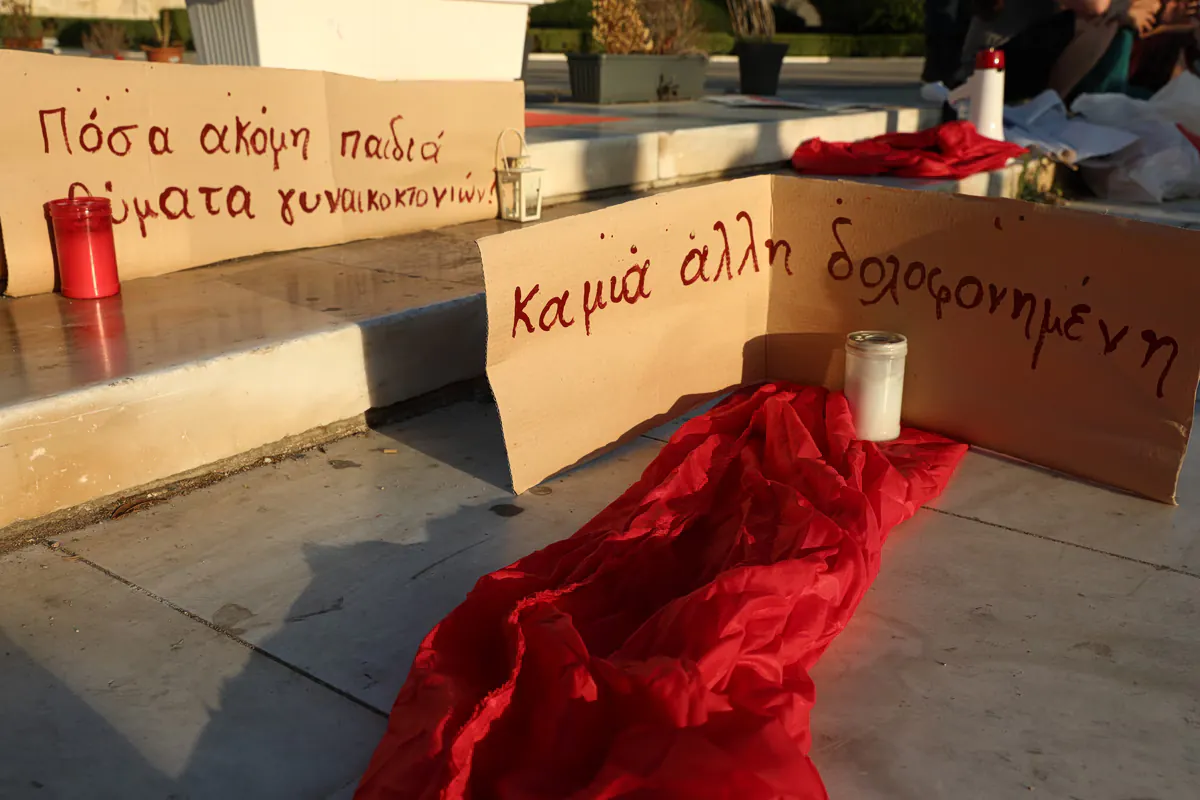 Πόσα ακόμη παιδιά
θύματα γυναικοκτονιών!
Καμιά άλλη δολοφονημένη